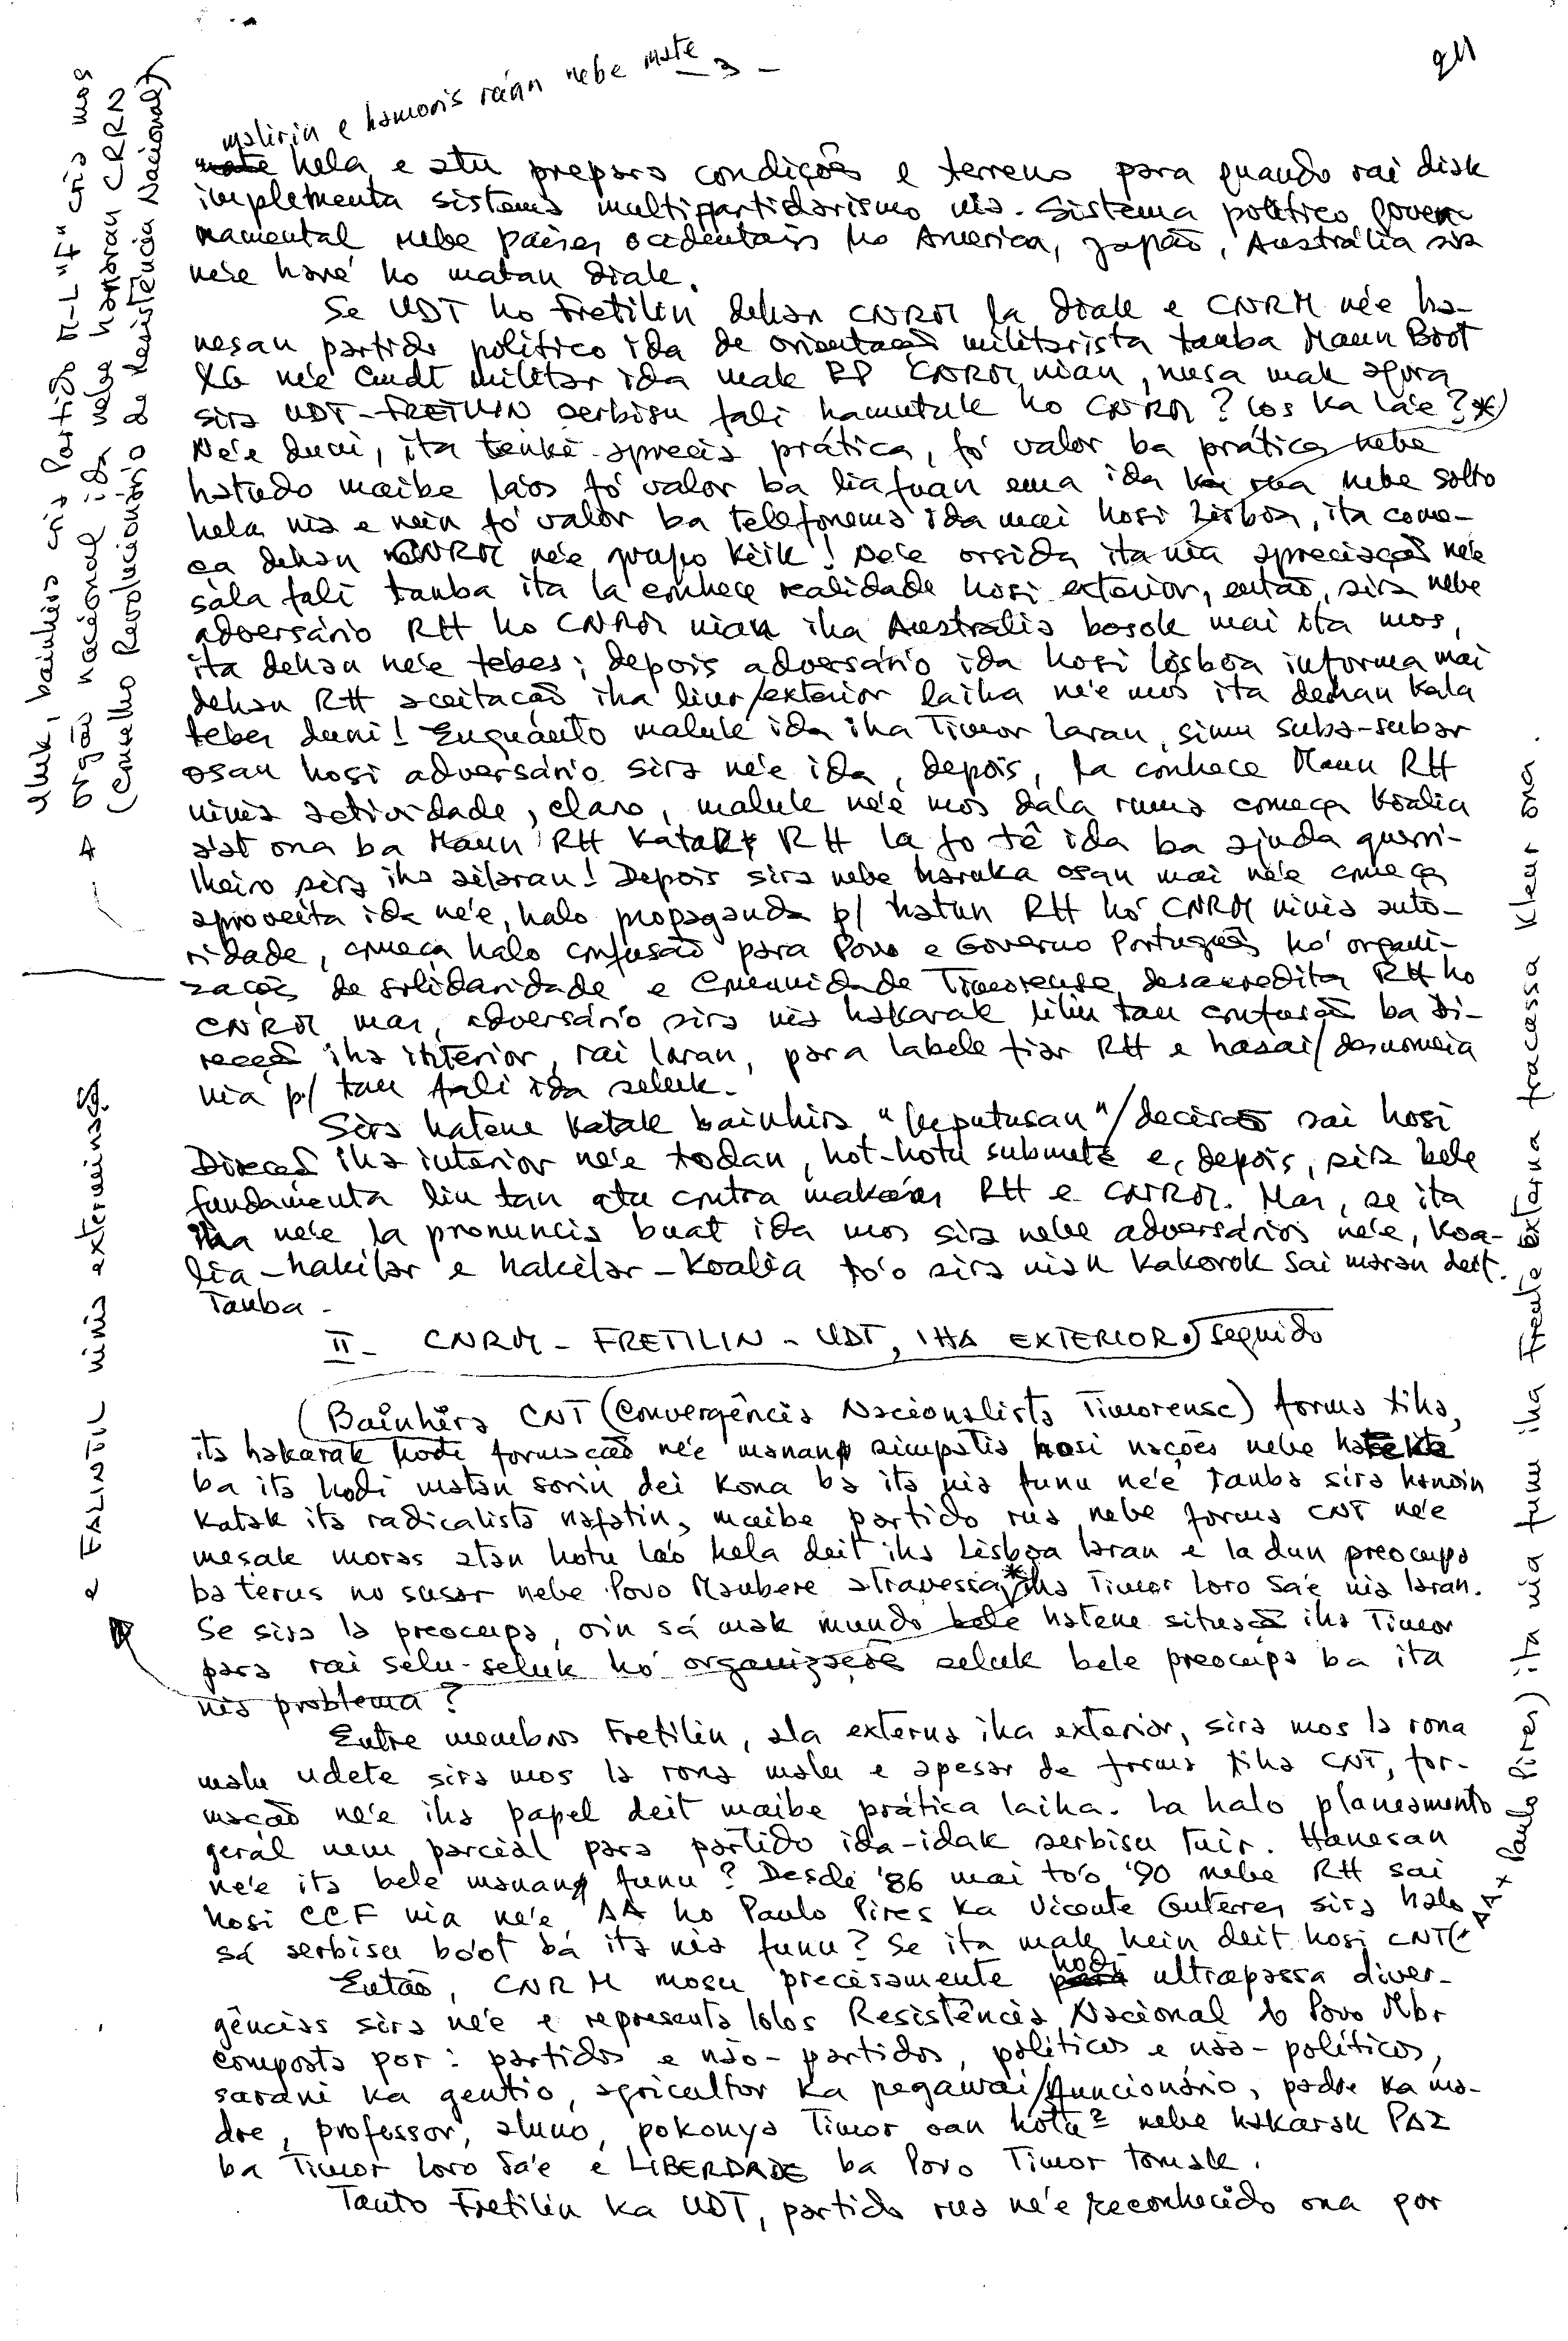 - 3 -
malirin e hamoris ráan nebe mate
mate hela e atu prepara condições e terreno para quando rai diak
implementa sistema multipartidarismo nia. Sistema político gover-
namental nebe países ocidentais ho America, Japão, Austrália sira
ne'e haré ho matan diak.
Se UDT ho Fretilin dehan CNRM la diak e CNRM ne'e ha-
nesan partido político ida de orientação militarista tanba Maun Boot
XG ne'e Cmdt militar ida mak RP CNRM nian, nusa mak agora
sira UDT-FRETILIN serbisu fali hamutuk ho CNRM? Los ka la'e? *)
Ne'e duni, ita tenke aprecia prática, fó valor ba prática nebe
hatudo maibe la'os fó valor ba liafuan ema ida ka rua nebe solto
hela nia e nein fó valor ba telefonema ida mai hosi Lisboa, ita come-
ça dehan CNRM ne'e grupo kiik! Ne'e orsida ita nia apreciação ne'e
sala fali tanba ita la conhece realidade hosi exterior, então, sira nebe
adversário RH ho CNRM nian iha Australia bosok mai ita mos,
ita dehan ne'e tebes; depois adversário ida hosi Lisboa informa mai
dehan RH aceitação iha liur/exterior laiha ne'e mos ita dehan kala
tebes duni! Enquanto maluk ida iha Timor laran, simu suba-subar
osan hosi adversário sira ne'e ida, depois, la conhece Maun RH
ninia actividade, claro, maluk ne'e mos dala ruma começa koalia
a'at ona ba Maun RH katak RH la fo tê ida ba ajuda guerri-
lheiro sira iha ailaran! Depois sira nebe haruka osan mai ne'e começa
aproveita ida ne'e, halo propaganda p/ hatun RH ho CNRM ninia auto-
ridade, começa halo confusão para Povo e Governo Português ho organi-
zações de solidariedade e Comunidade Timorense desacredita RH ho
CNRM mas, adversário sira nia hakarak liliu tau confusão ba Di-
recção iha interior, rai laran, para labele fiar RH e hasai/desnomeia
nia p/ tau fali ida seluk.
Sira hatene katak bainhira "keputusan"/decisão sai hosi
Direcção iha interior ne'e todan, hot-hotu submete e, depois, sira bele
fundamenta liu tan atu contra makaas RH e CNRM. Mas, se ita
iha ne'e la pronuncia buat ida mos sira nebe adversários ne'e, koa-
lia-hakilar e hakilar-koalia to'o sira nian kakorok sai maran deit.
Tanba -
II - CNRM - FRETILIN - UDT, IHA EXTERIOR. seguido
(Bainhira CNT (Convergência Nacionalista Timorense) forma tiha,
ita hakarak hodi formação ne'e manan simpatia hosi nações nebe
ba ita hodi matan sorin dei kona ba ita nia funu ne'e tanba sira hanoin
katak ita radicalista nafatin, maibe partido rua nebe forma CNT ne'e
mesak moras atan hotu lao hela deit iha Lisboa laran e la dun preocupa
ba terus no susar nebe Povo Maubere atravessa * iha Timor Loro Sa'e nia laran.
Se sira la preocupa, oin sá mak mundo bele hatene situação iha Timor
para rai selu-seluk ho organizações seluk bele preocupa ba ita
nia problema?
Entre membros Fretilin, ala externa iha exterior, sira mos la rona
malu udete sira mos la rona malu e apesar de forma tiha CNT, for-
mação ne'e iha papel deit maibe prática laiha. La halo planeamento
geral nem parcial para partido ida-idak serbisu tuir. Hanesan
ne'e ita bele manan funu? Desde '86 mai to'o '90 nebe RH sai
hosi CCF nia ne'e, AA ho Paulo Pires ka Vicente Guterres sira halo
sá serbisu bo'ot ba ita nia funu? Se ita mak hein deit hosi CNT (AA + Paulo Pires) ita nia funu iha Frente Externa fracassa kleur ona.
Então, CNRM mosu precisamente hodi ultrapassa diver-
gências sira ne'e e representa lolos Resistência Nacional do Povo Mbr
composta por: partidos e não-partidos, políticos e não-políticos,
sarani ka gentio, agricultor ka pegawai/funcionário, padre ka ma-
dre, professor, aluno, pokonya Timor oan hotu2 nebe hakarak PAZ
ba Timor Loro Sa'e e LIBERDADE ba Povo Timor tomak.
Tanto Fretilin ka UDT, partido rua ne'e reconhecido ona por
uluk, bainhira cria Partido M-L "F" cria mos
órgão nacional ida nebe hanaran CRRN
(Conselho Revolucionário de Resistência Nacional)
e FALINTIL ninia extermeinas